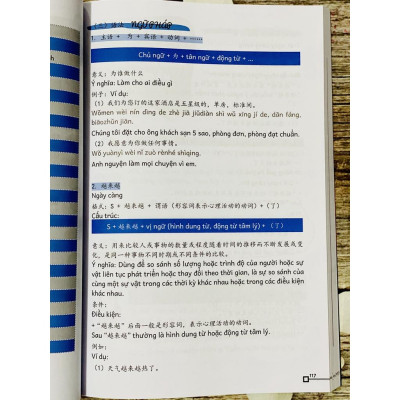 (二) 语法 NGỮ PHÁP
1. 主语 + 为 + 宾语 + 动词 + ……
Chủ ngữ + 为 + tân ngữ + động từ + ...
意义：为谁做什么
Ý nghĩa: Làm cho ai điều gì
例子：Ví dụ:
（1）我们为您订的这家酒店是五星级的，单房，标准间。
Wǒmen wèi nín dìng de zhè jiā jiǔdiàn shì wǔ xīng jí de, dān fáng,
biāozhǔn jiān.
Chúng tôi đặt cho ông khách sạn 5 sao, phòng đơn, phòng đạt chuẩn.
（2）我愿意为你做任何事情。
Wǒ yuànyì wèi nǐ zuò rènhé shìqing.
Anh nguyện làm mọi chuyện vì em.
2. 越来越
Ngày càng
格式：S + 越来越 + 谓语（形容词表示心理活动的动词）+（了）
Cấu trúc:
S + 越来越 + vị ngữ (hình dung từ, động từ tâm lý) + (了)
意义：用来比较人或事物的数量或程度随着时间的推移而不断发展或变
化，是同一种事物不同时期或不同条件的比较。
Ý nghĩa: Dùng để so sánh số lượng hoặc trình độ của người hoặc sự
vật liên tục phát triển hoặc thay đổi theo thời gian, là sự so sánh của
cùng một sự vật trong các thời kỳ khác nhau hoặc trong các điều kiện
khác nhau.
条件：
Điều kiện:
+ “越来越” 后面一般是形容词，表示心理活动的动词。
Sau “越来越” thường là hình dung từ hoặc động từ tâm lý.
例如：
Ví dụ:
（1）天气越来越热了。
117